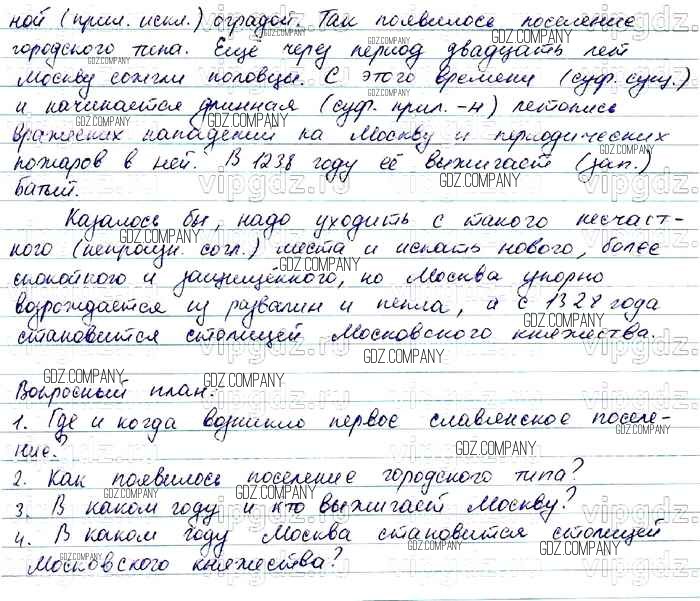 ной (прил. искл.) оградой. Так появилось поселение
городского типа. Ещё через период двадцать лет
Москву сожгли половцы. С этого времени (суф. сущ.)
и начинается длинная (суф. прил. -н) летопись
вражеских нападений на Москву и периодических
пожаров в ней. В 1238 году её выжигает (зап.)
Батый.
Казалось бы, надо уходить с такого несчаст-
ного (непроизн. согл.) места и искать нового, более
спокойного и защищённого, но Москва упорно
возрождается из развалин и пепла, а с 1328 года
становится столицей Московского княжества.
Вопросный план.
1. Где и когда возникло первое славянское поселе-
ние?
2. Как появилось поселение городского типа?
3. В каком году и кто выжигает Москву?
4. В каком году Москва становится столицей
Московского княжества?
GDZ.COMPANY
vipgdz.ru